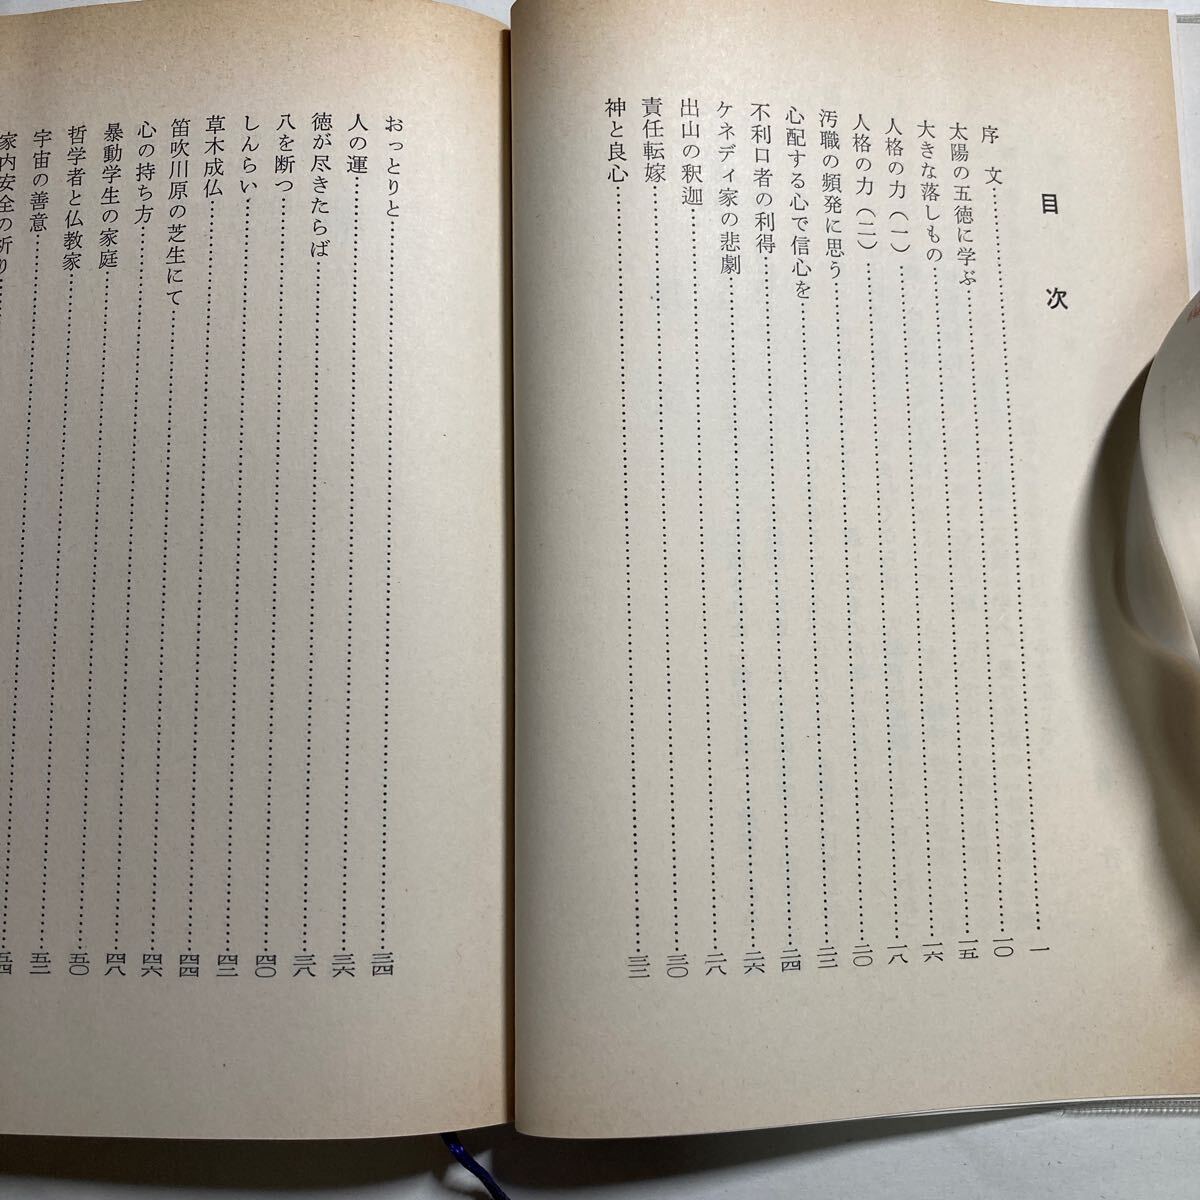 目次
序文……一
太陽の五徳に学ぶ……一〇
大きな落しもの……一五
人格の力(一)……一六
人格の力(二)……一八
汚職の頻発に思う……二〇
心配する心で信心を……二二
不利口者の利得……二四
ケネディ家の悲劇……二六
出山の釈迦……二八
責任転嫁……三〇
神と良心……三二
おっとりと……三四
人の運……三六
徳が尽きたらば……三八
八を断つ……四〇
しんらい……四二
草木成仏……四四
笛吹川原の芝生にて……四六
心の持ち方……四八
暴動学生の家庭……五〇
哲学者と仏教家……五二
宇宙の善意……五四
家内安全の祈り……